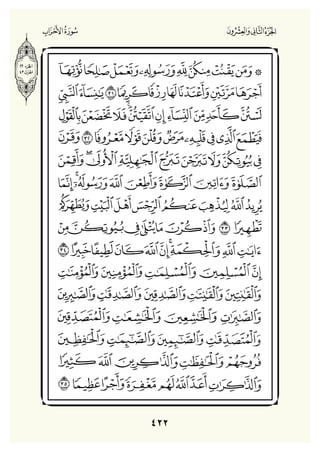 الجزء الثاني والعشرون
سورة الأحزاب
۞ وَمَن يَقْنُتْ مِنكُنَّ لِلَّهِ وَرَسُولِهِۦ وَتَعْمَلْ صَٰلِحًا نُّؤْتِهَآ
أَجْرَهَا مَرَّتَيْنِ وَأَعْتَدْنَا لَهَا رِزْقًا كَرِيمًا ٣١ يَٰنِسَآءَ ٱلنَّبِيِّ
لَسْتُنَّ كَأَحَدٍ مِّنَ ٱلنِّسَآءِ إِنِ ٱتَّقَيْتُنَّ فَلَا تَخْضَعْنَ بِٱلْقَوْلِ
فَيَطْمَعَ ٱلَّذِي فِي قَلْبِهِۦ مَرَضٌ وَقُلْنَ قَوْلًا مَّعْرُوفًا ٣٢ وَقَرْنَ
فِي بُيُوتِكُنَّ وَلَا تَبَرَّجْنَ تَبَرُّجَ ٱلْجَٰهِلِيَّةِ ٱلْأُولَىٰ وَأَقِمْنَ
ٱلصَّلَوٰةَ وَءَاتِينَ ٱلزَّكَوٰةَ وَأَطِعْنَ ٱللَّهَ وَرَسُولَهُۥٓ إِنَّمَا
يُرِيدُ ٱللَّهُ لِيُذْهِبَ عَنكُمُ ٱلرِّجْسَ أَهْلَ ٱلْبَيْتِ وَيُطَهِّرَكُمْ
تَطْهِيرًا ٣٣ وَٱذْكُرْنَ مَا يُتْلَىٰ فِي بُيُوتِكُنَّ مِنْ
ءَايَٰتِ ٱللَّهِ وَٱلْحِكْمَةِ إِنَّ ٱللَّهَ كَانَ لَطِيفًا خَبِيرًا ٣٤
إِنَّ ٱلْمُسْلِمِينَ وَٱلْمُسْلِمَٰتِ وَٱلْمُؤْمِنِينَ وَٱلْمُؤْمِنَٰتِ
وَٱلْقَٰنِتِينَ وَٱلْقَٰنِتَٰتِ وَٱلصَّٰدِقِينَ وَٱلصَّٰدِقَٰتِ وَٱلصَّٰبِرِينَ
وَٱلصَّٰبِرَٰتِ وَٱلْخَٰشِعِينَ وَٱلْخَٰشِعَٰتِ وَٱلْمُتَصَدِّقِينَ
وَٱلْمُتَصَدِّقَٰتِ وَٱلصَّٰٓئِمِينَ وَٱلصَّٰٓئِمَٰتِ وَٱلْحَٰفِظِينَ
فُرُوجَهُمْ وَٱلْحَٰفِظَٰتِ وَٱلذَّٰكِرِينَ ٱللَّهَ كَثِيرًا
وَٱلذَّٰكِرَٰتِ أَعَدَّ ٱللَّهُ لَهُم مَّغْفِرَةً وَأَجْرًا عَظِيمًا ٣٥
٤٢٢